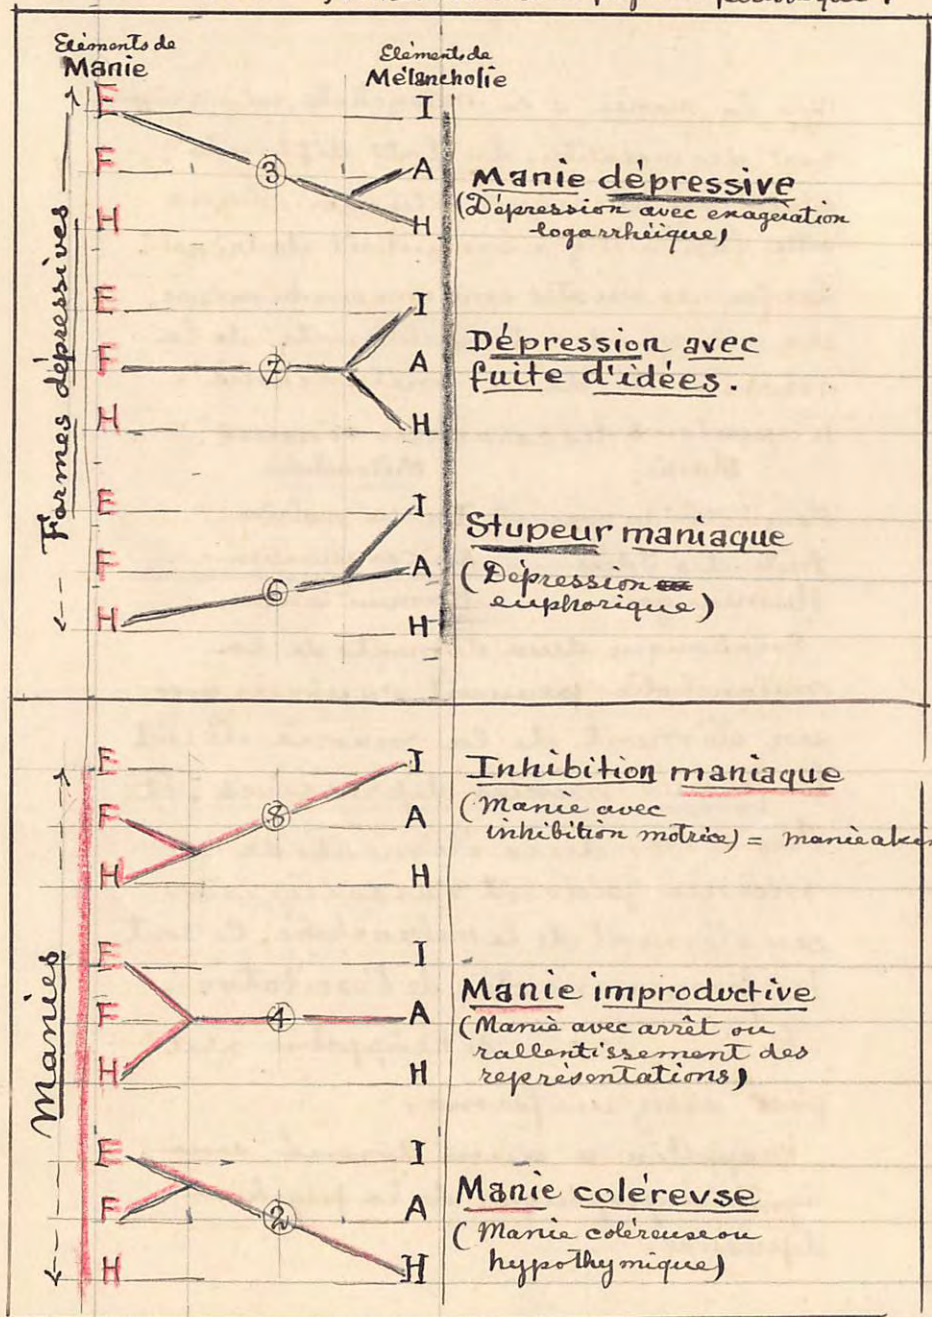 Eléments de
Manie
Eléments de
Mélancholie
Formes dépressives
E I
F ③ A
H H
Manie dépressive
(Dépression avec exagération
logarrhéique)
E I
F ⑦ A
H H
Dépression avec
fuite d'idées.
E I
F A
⑥
H H
Stupeur maniaque
(Dépression
euphorique)
Manies
E I
F ⑧ A
H H
Inhibition maniaque
(Manie avec
inhibition motrice) = manie akin
E I
F ④ A
H H
Manie improductive
(Manie avec arrêt ou
rallentissement des
représentations)
E I
F ② A
H H
Manie coléreuse
(Manie coléreuse ou
hypothymique)